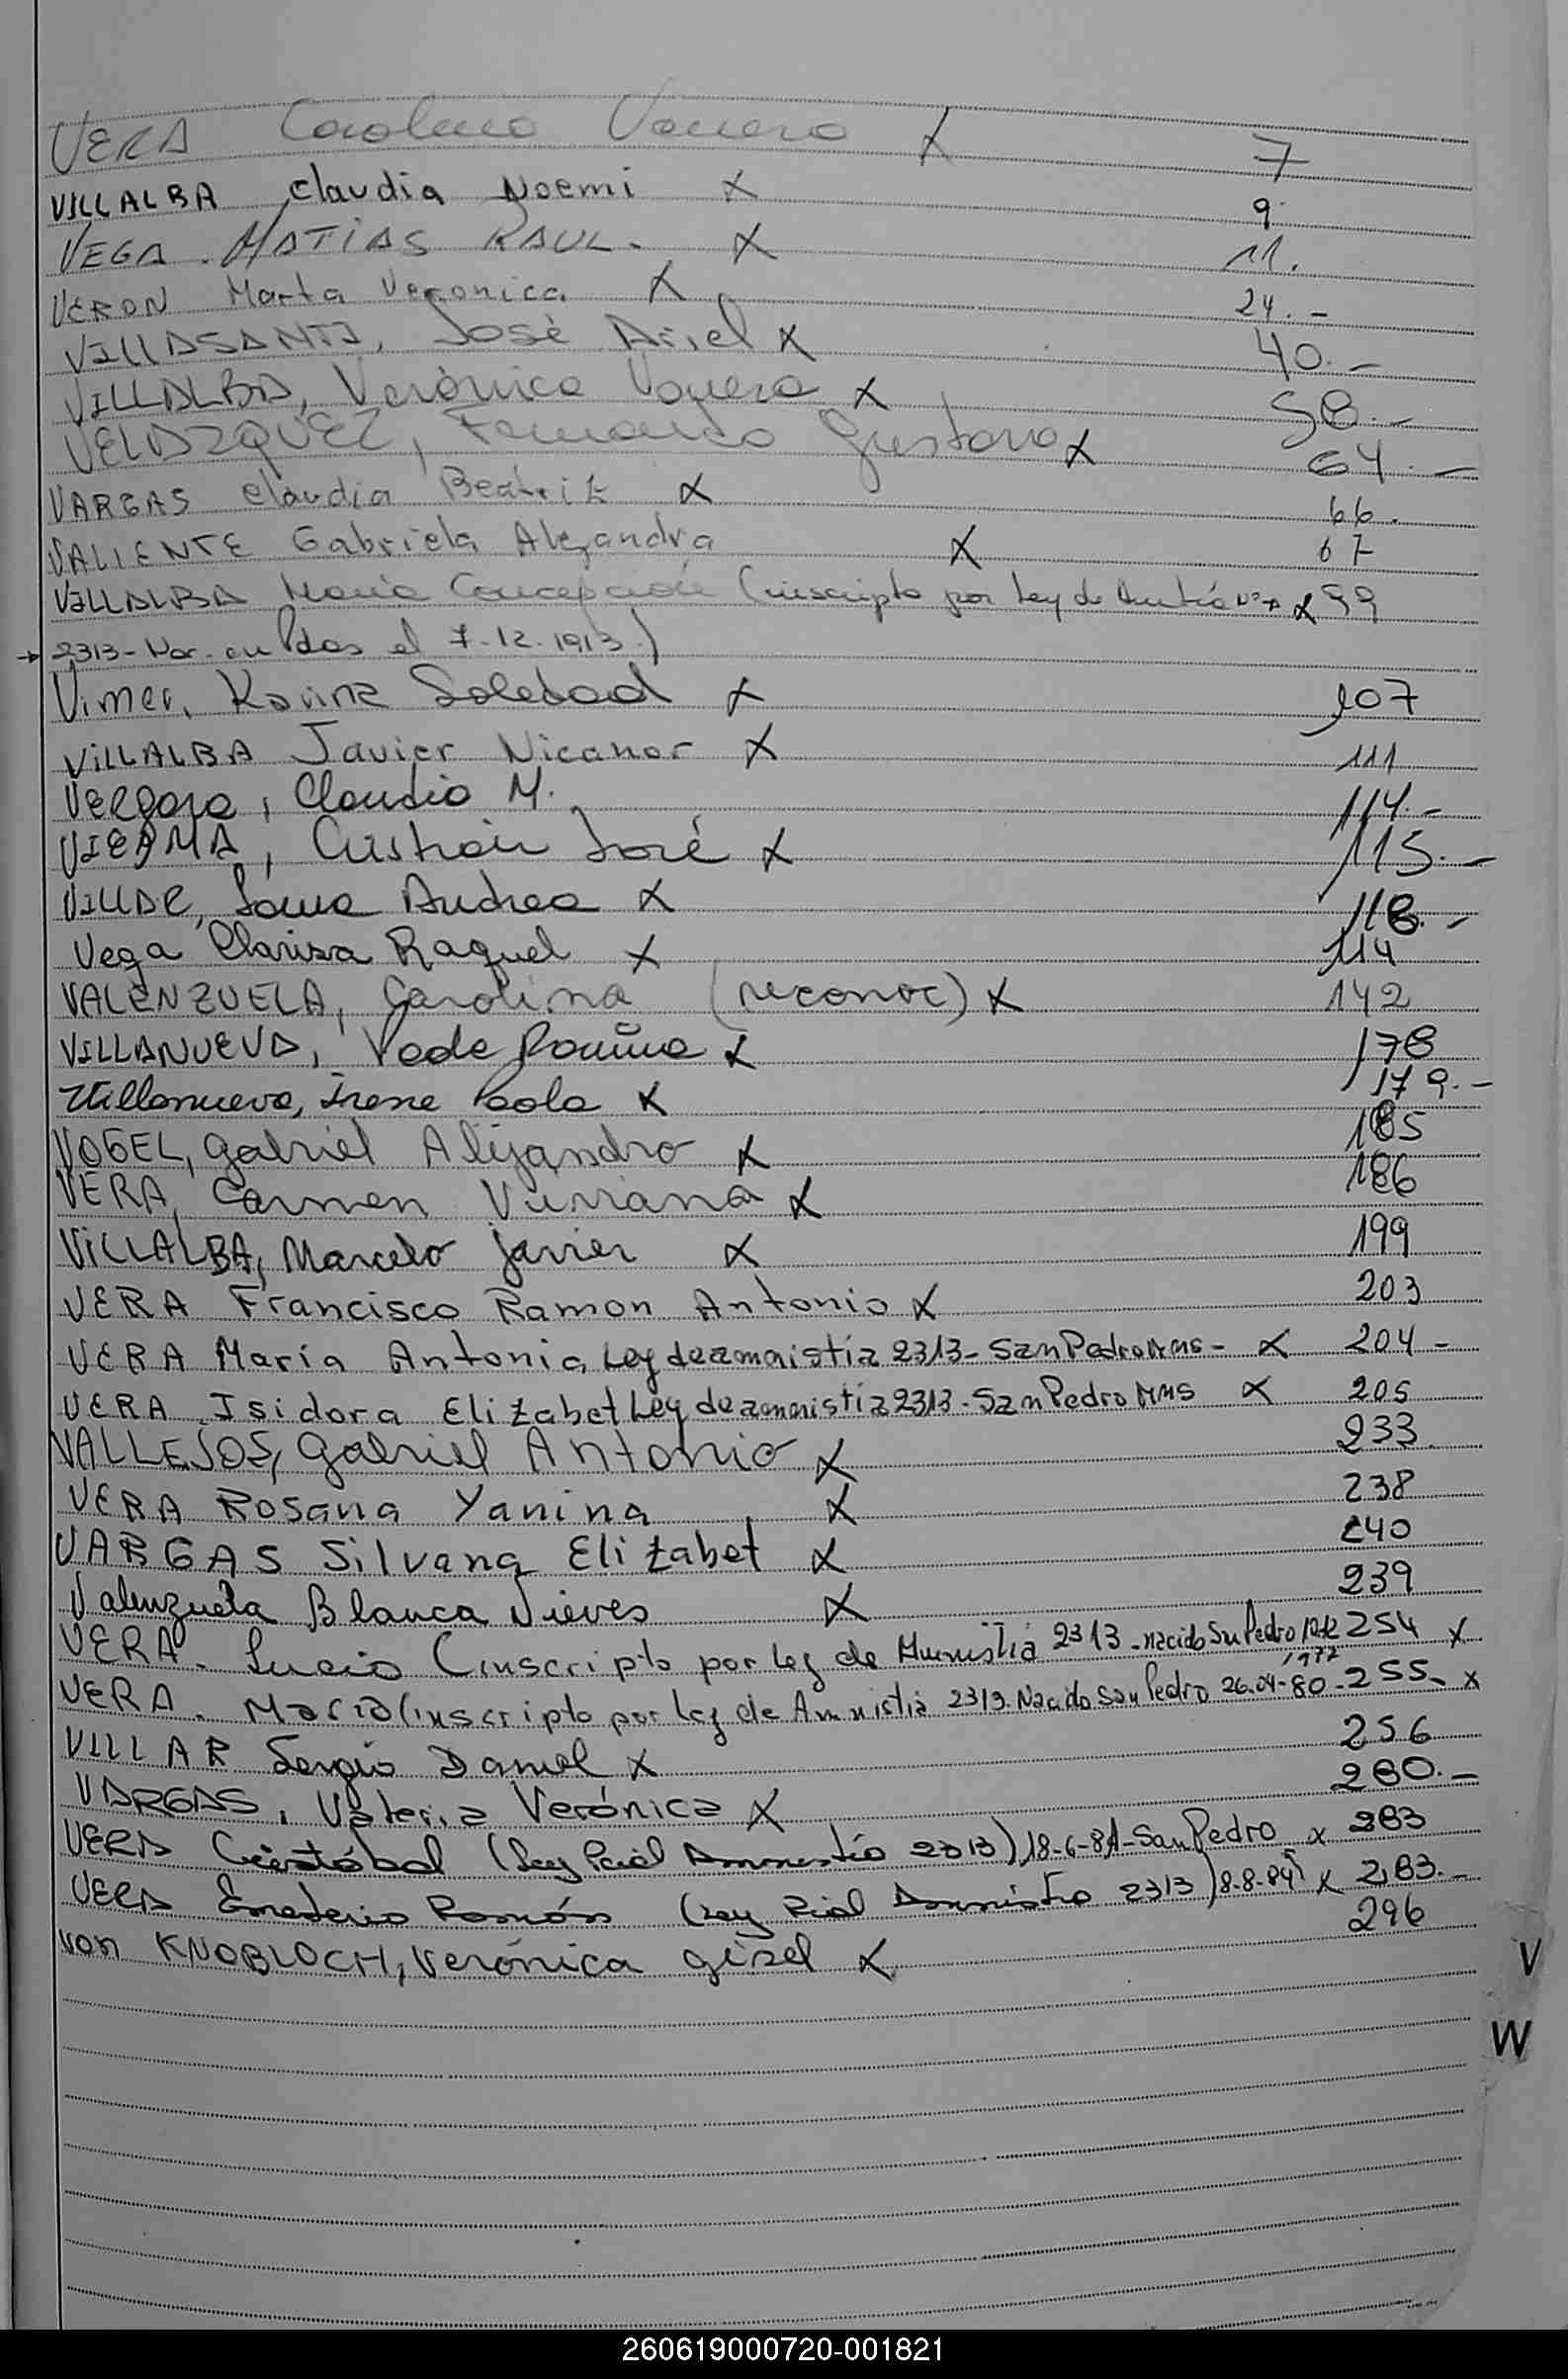 VERA Carolina Vanesa X 7
VILLALBA Claudia Noemi X 9
VEGA. MATIAS RAUL. X 11.
VERON Marta Veronica X 24.-
VILLASANTI, José Ariel X 40.-
VILLALBA, Verónica Vanesa X 58.-
VELAZQUEZ, Fernando Gustavo X 64.-
VARGAS Claudia Beatriz X 66.
VALIENTE Gabriela Alejandra X 67
VILLALBA María Concepción (inscripto por Ley de X 99
→ 2313- Nac. en Pdas el 7-12-1913.)
Vimer, Karina Soledad X 107
VILLALBA Javier Nicanor X 111
Vergara, Claudio M. 114.-
VIERMA, Cristian José X 115.-
VILLAR, Andrea X 118.-
Vega Clarisa Raquel X 114
VALENZUELA, Carolina (reconoc) X 142
VILLANUEVA, Romina X 178
Villanueva, Irene Paola X 179.-
VOGEL, Gabriel Alejandro X 185
VERA, Carmen Viviana X 186
VILLALBA, Marcelo Javier X 199
VERA Francisco Ramon Antonio X 203
VERA María Antonia Ley de amnistía 2313- San Pedro Mns- X 204-
VERA Isidora Elizabet Ley de amnistía 2313- San Pedro Mns X 205
VALLEJOS, Gabriel Antonio X 233.
VERA Rosana Yanina X 238
VARGAS Silvana Elizabet X 240
Valenzuela Blanca Nieves X 239
VERA. Lucio (inscripto por Ley de Amnistia 2313-nacido Sn Pedro 1977 254 X
VERA. María (inscripto por Ley de Amnistia 2313. Nacido San Pedro 26-04-80-255- X
VILLAR Sergio Daniel X 256
VARGAS, Valeria Verónica X 260.-
VERA Cristóbal (Ley Pcial Amnestía 2313) 18-6-81-San Pedro X 263
VERA Emeterio Ramón (Ley Pcial Amnistía 2313) 8-8-84 X 283.-
von KNOBLOCH, Verónica gisel X 296
V
W
260619000720-001821